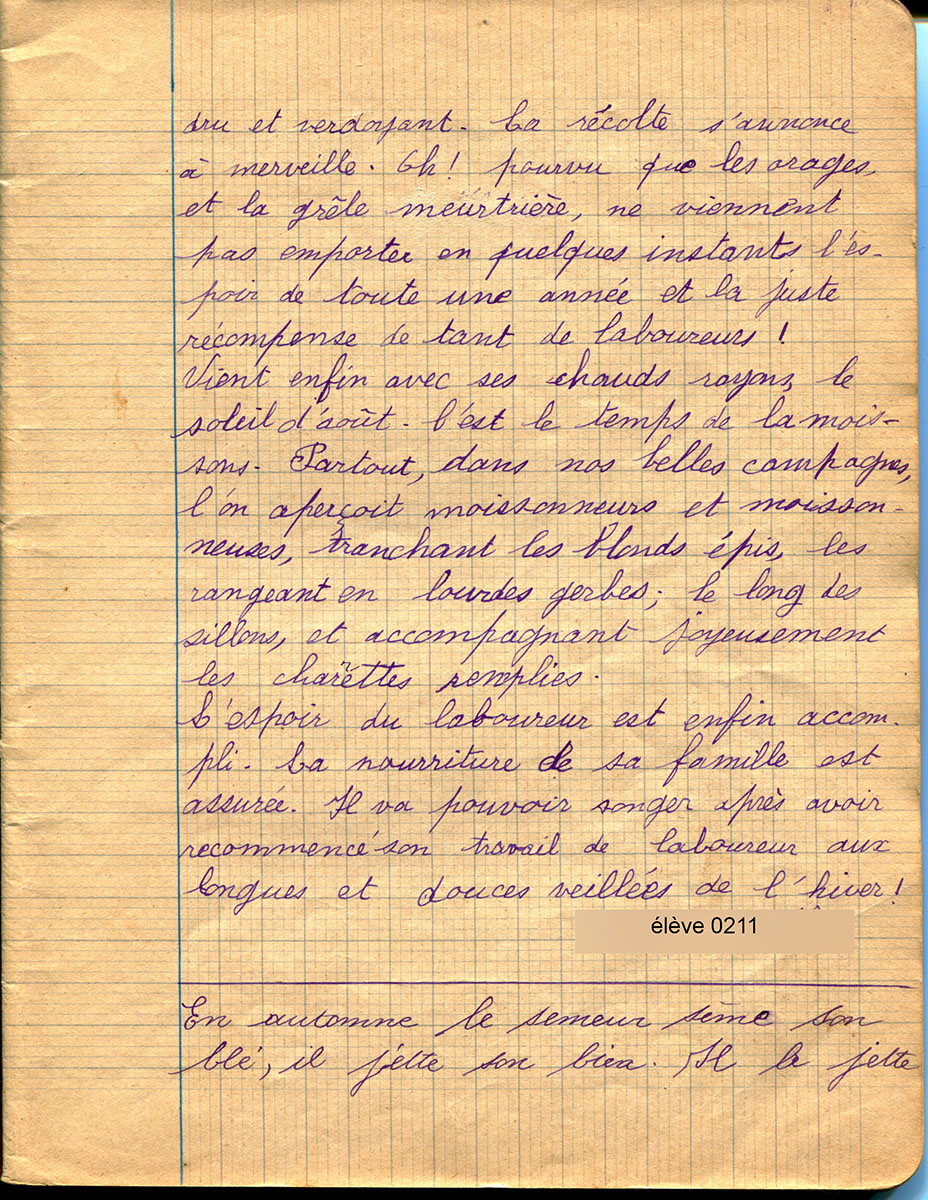 dru et verdoyant. La récolte s'annonce
à merveille. Oh! pourvu que les orages,
et la grêle meurtrière, ne viennent
pas emporter en quelques instants l'es-
poir de toute une année et la juste
récompense de tant de laboureurs!
Vient enfin avec ses chauds rayons, le
soleil d'août. C'est le temps de la mois-
sons. Partout, dans nos belles campagnes,
l'on aperçoit moissonneurs et moisson-
neuses, tranchant les blonds épis, les
rangeant en lourdes gerbes; le long des
sillons, et accompagnant joyeusement
les charrettes remplies.
L'espoir du laboureur est enfin accom-
pli. La nourriture de sa famille est
assurée. Il va pouvoir songer après avoir
recommencé son travail de laboureur aux
longues et douces veillées de l'hiver!
élève 0211
En automne le semeur sème son
blé, il jette son bien. Il le jette